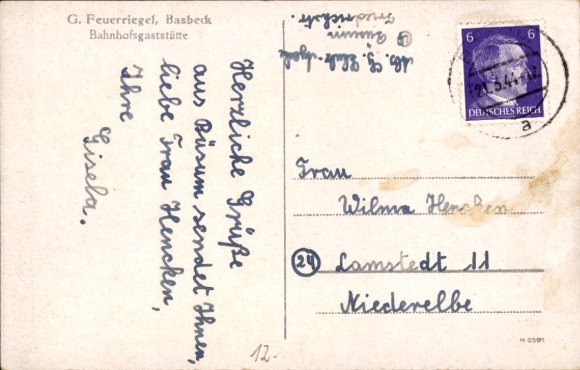 G. Feuerriegel, Basbeck
Bahnhofsgaststätte
Herzliche Grüße
aus Büsum sendet Ihnen,
liebe Frau Hencken,
Ihre
Gisela.
Büsum
6 6
DEUTSCHES REICH
21.5.44
a
Frau
Wilma Hencken
24 Lamstedt 11
Niederelbe
12.-